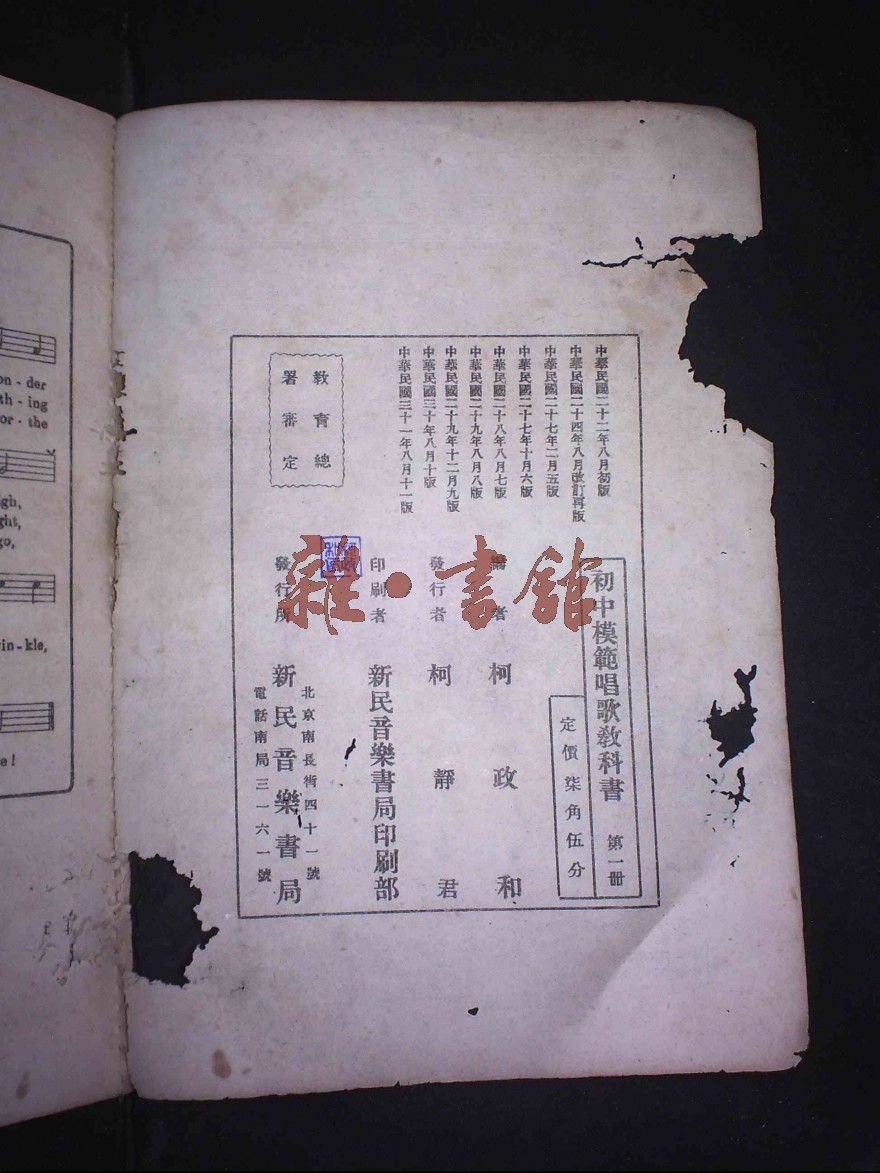 中華民國二十二年八月初版
中華民國二十四年八月改訂再版
中華民國二十七年二月五版
中華民國二十七年十月六版
中華民國二十八年八月七版
中華民國二十九年八月八版
中華民國二十九年十二月九版
中華民國三十年八月十版
中華民國三十一年八月十一版
教育總
署審定
初中模範唱歌教科書 第一冊
定價柒角伍分
編者 柯政和
發行者 柯靜君
印刷者 新民音樂書局印刷部
發行所 新民音樂書局
北京南長街四十一號
電話南局三一六一號
雜·書館
on - der
th - ing
or - the
igh,
ght,
go,
vin - kle,
e!